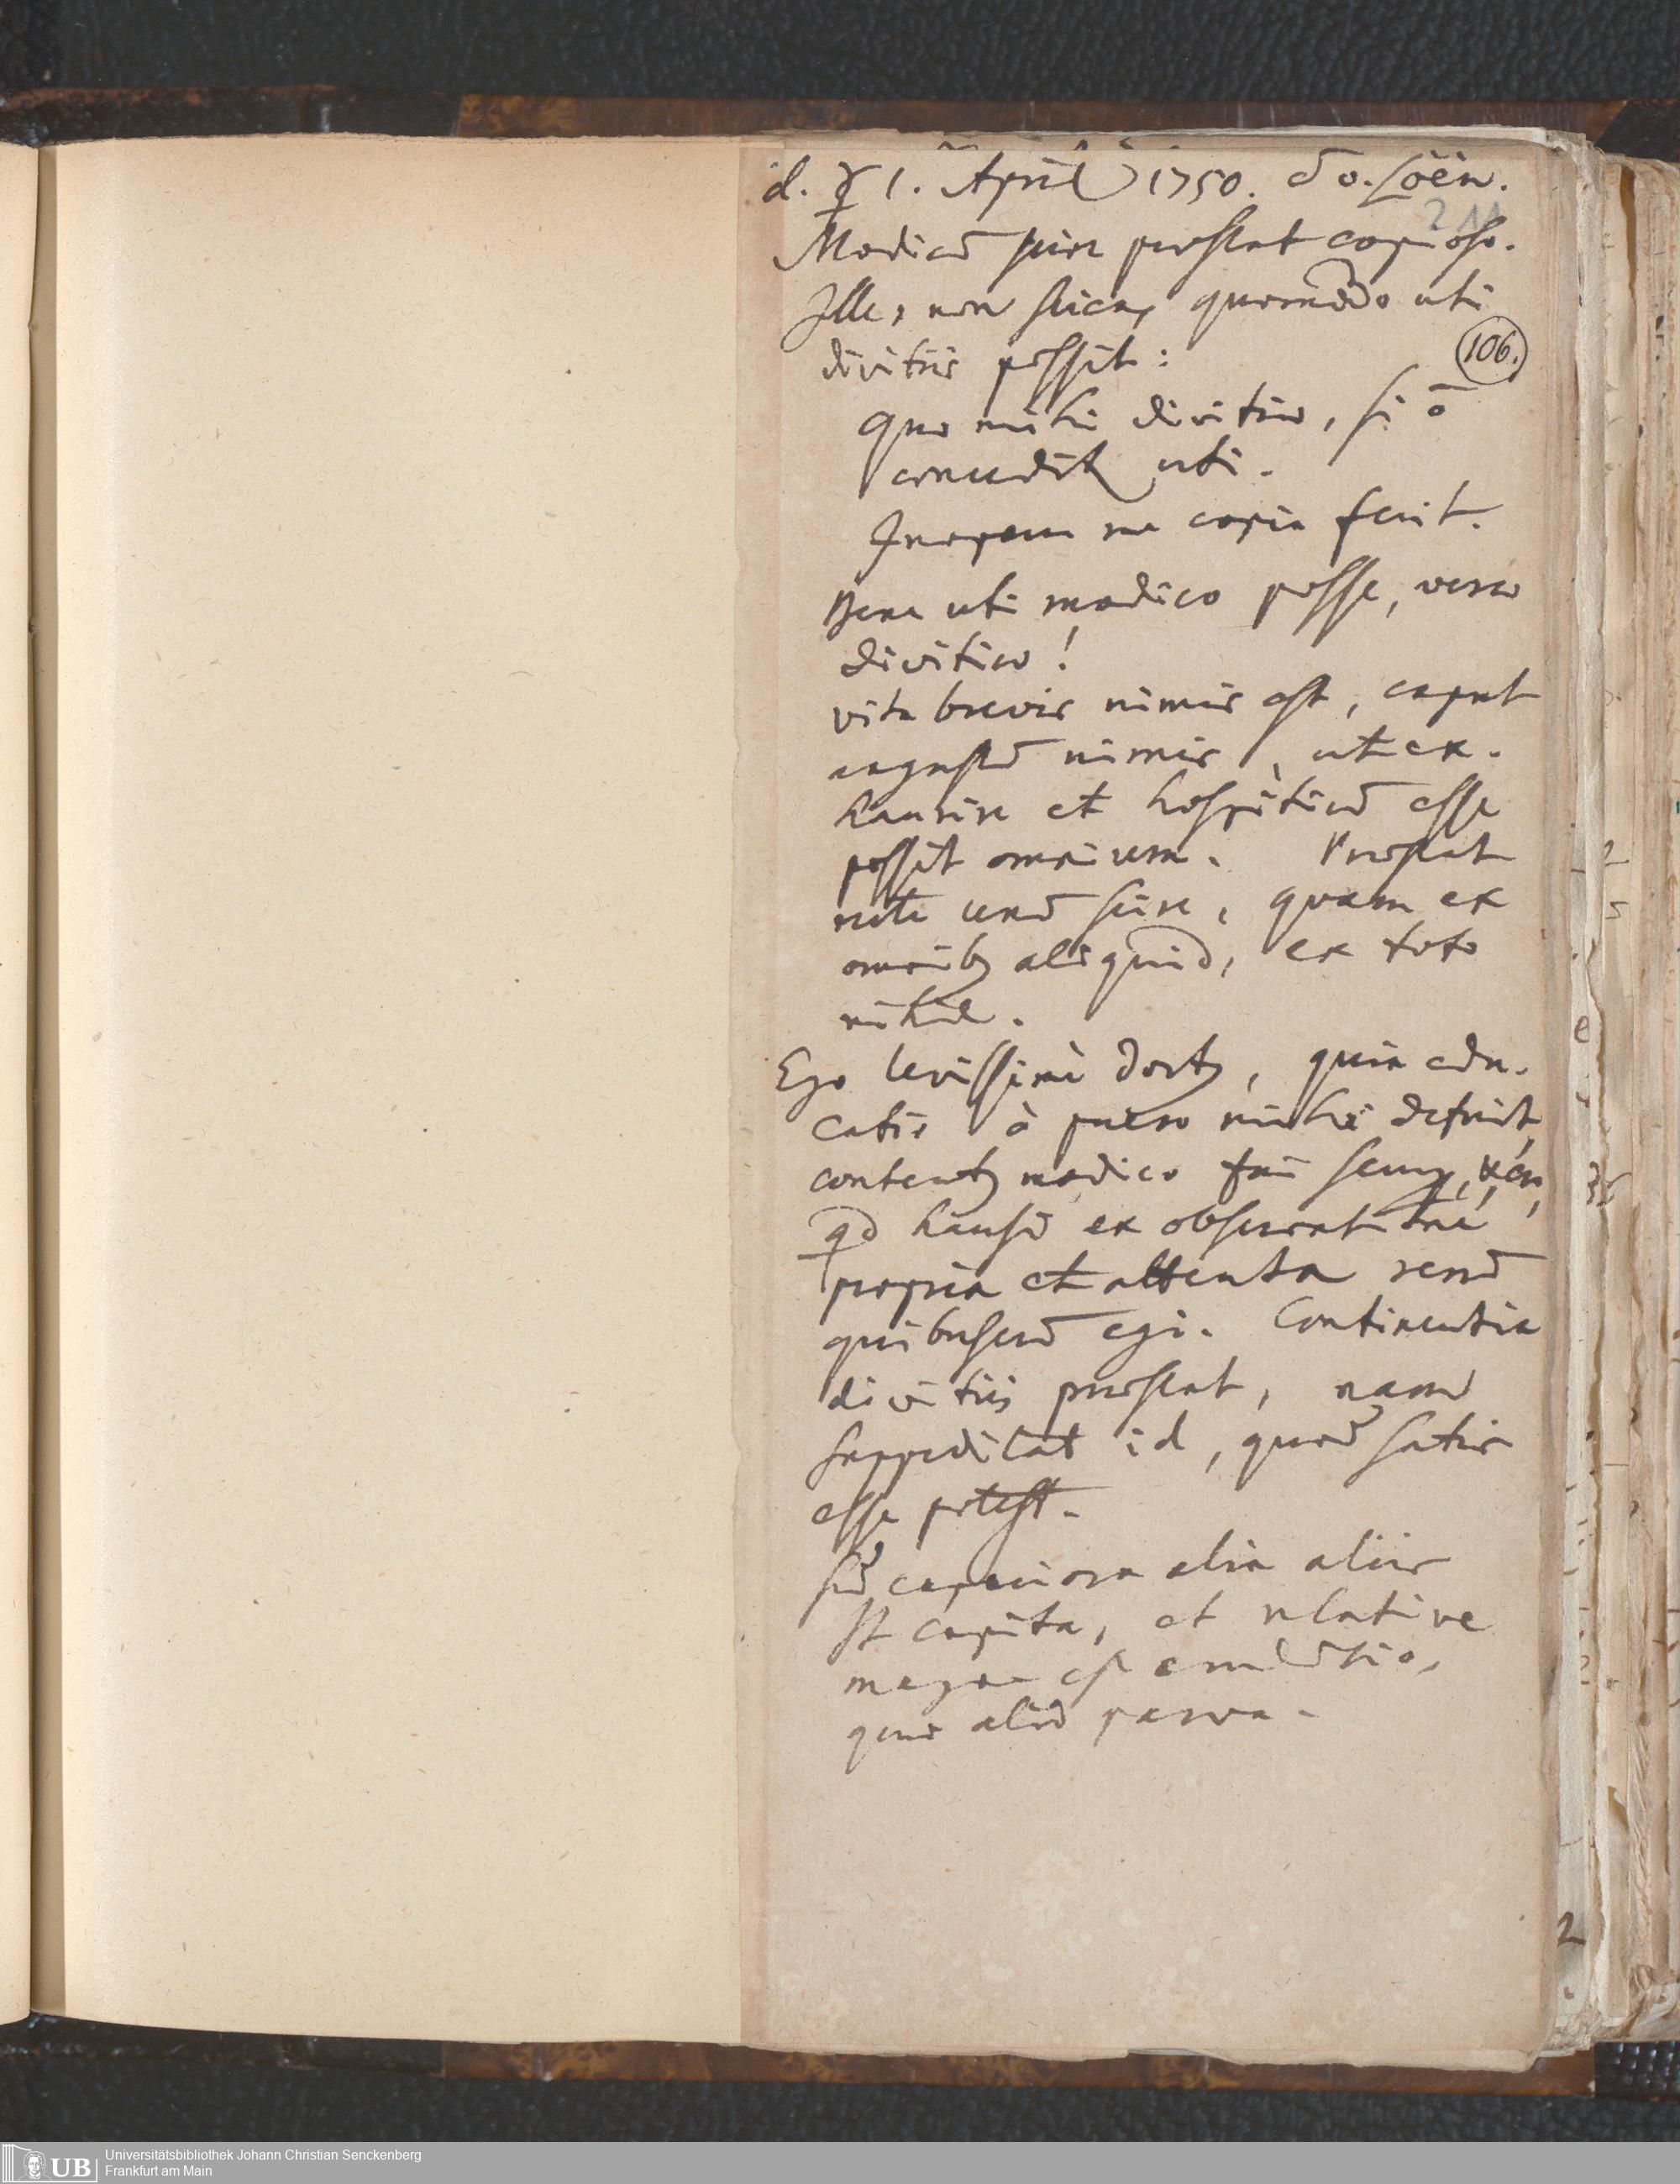 d. ☿ 1. April 1750. do. Löen.
211
Modicū scire præstat copioso.
Ille, non sciens quomodo uti
divitiis possit:
106.
Quo mihi divitiæ, si ō
conceditr uti.
Inopem me copia fecit.
Bene uti modico posse, veræ
divitiæ!
vita brevis nimis est, caput
angustū nimis, ut ex-
haurire et hospitiū esse
possit omnium. Præstat
rite unū scire, quam ex
omnibꝫ aliquid, ex toto
nihil.
Ego levissimè doctꝫ, quia edu-
catio à puero mihi defuit,
contentꝫ modico fui semp,
qd hausi ex observatione
propria et attenta rerū
quibuscū egi. Continentia
divitiis præstat, nam
suppeditat id, quod satis
esse potest.
Sūt capaciora alia aliis
st capita, et relative
magna est eruditio,
quæ alio parva.
Universitätsbibliothek Johann Christian Senckenberg
Frankfurt am Main
UB